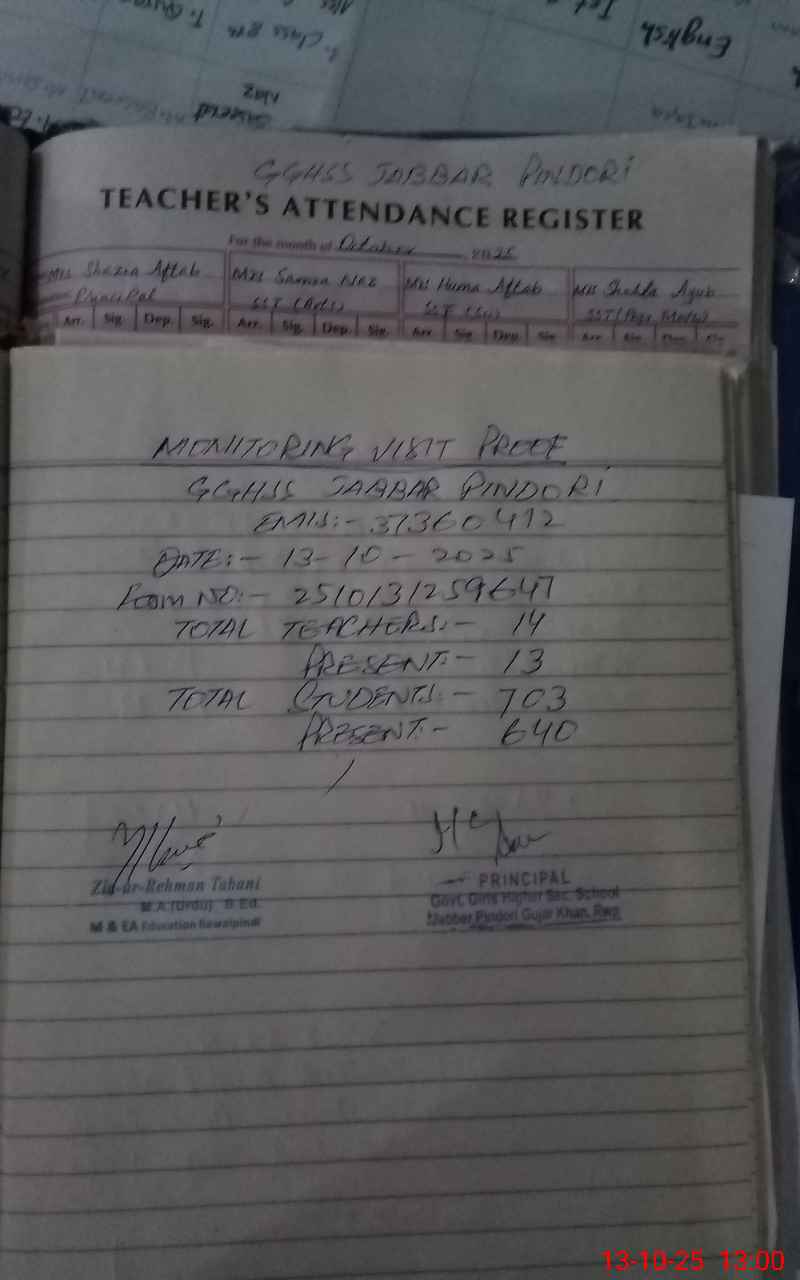 English
Class 8th
Naz
GGHSS JABBAR PINDORI
TEACHER'S ATTENDANCE REGISTER
For the month of October 2025
Mrs Shazia Aftab
Principal
Mrs Samina Naz
SST (Arts)
Mrs Huma Aftab
SST (Sci)
Mrs Shahida Ayub
Arr. Sig. Dep. Sig. Arr. Sig. Dep. Sig. Arr. Sig. Dep. Sig. Arr. Sig. Dep. Sig.
MONITORING VISIT PROOF
GGHSS JABBAR PINDORI
EMIS:- 37360412
DATE:- 13-10-2025
FORM NO:- 2510131259647
TOTAL TEACHERS:- 14
PRESENT:- 13
TOTAL STUDENTS:- 703
PRESENT:- 640
Zia-ur-Rehman Tabani
M.A (Urdu) B.Ed.
M & EA Education Rawalpindi
PRINCIPAL
Govt. Girls Higher Sec. School
Jabber Pindori Gujar Khan, Rwp
13-10-25 13:00